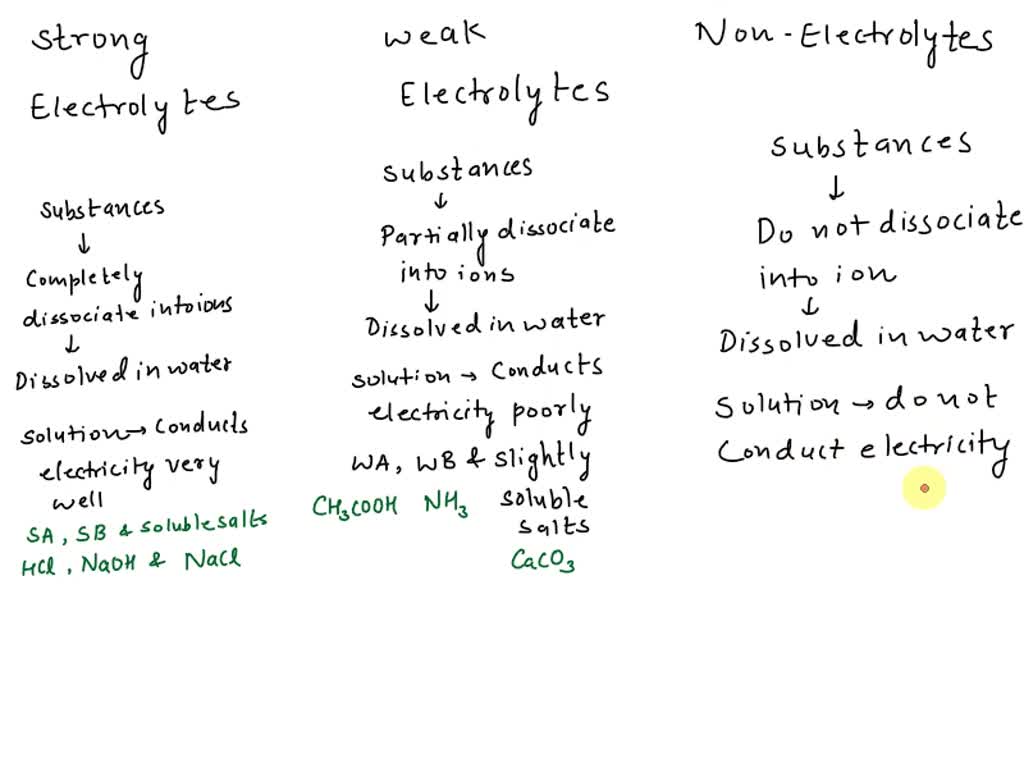 strong
Electrolytes
Substances
↓
Completely
dissociate into ions
↓
Dissolved in water
solution → Conducts
electricity very
well
SA, SB & soluble salts
HCl, NaOH & NaCl
weak
Electrolytes
Substances
↓
Partially dissociate
into ions
↓
Dissolved in water
solution → Conducts
electricity poorly
WA, WB & slightly
soluble
salts
CH₃COOH NH₃
CaCO₃
Non-Electrolytes
Substances
↓
Do not dissociate
into ion
↓
Dissolved in water
Solution → do not
Conduct electricity